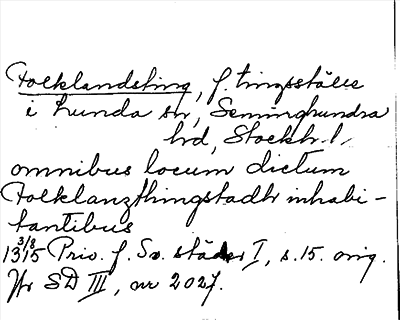 Folklandsting, f. tingsställe
i Lunda sn, Seminghundra
hrd, Stockh. l.
omnibus locum dictum
Folklanzthingstadh inhabi-
tantibus
1315 3/8 Priv. f. Sv. städer I, s. 15. orig.
Tr SD III, nr 2027.